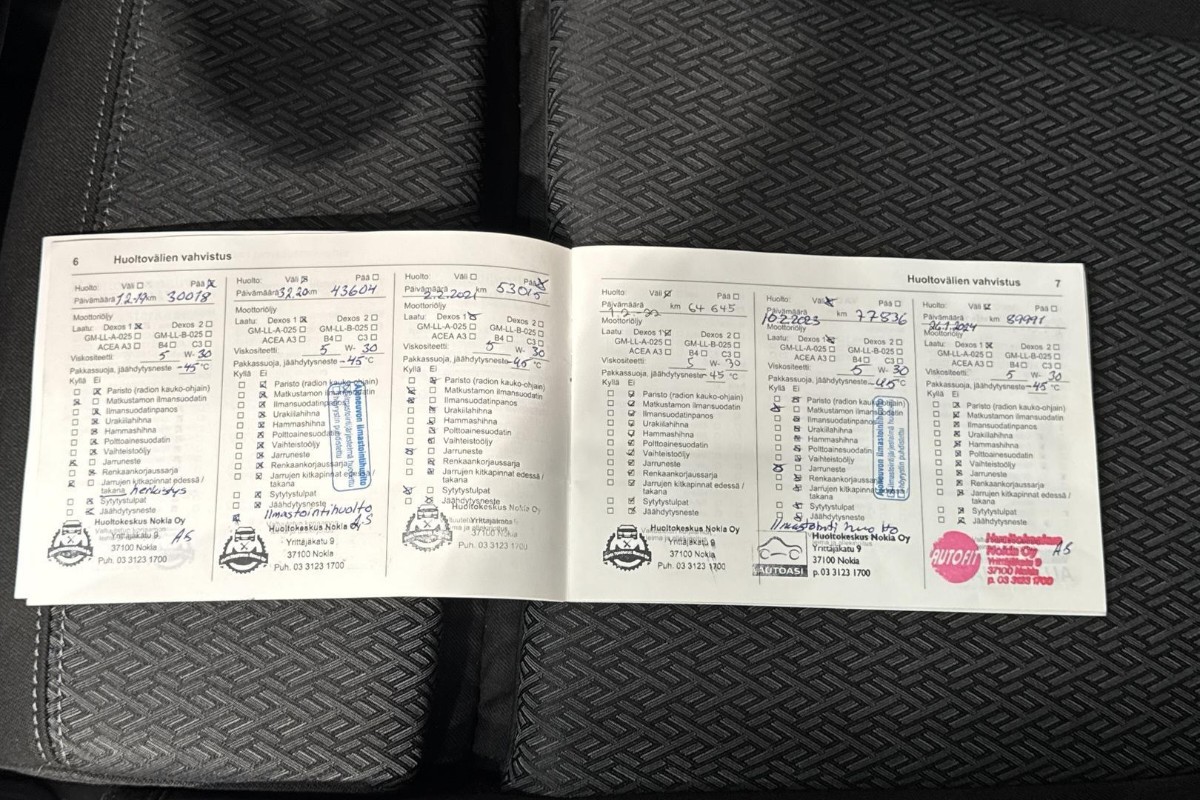 6 Huoltovälien vahvistus
Huolto: Väli Pää
Päivämäärä 12-19 km 30018
Moottoriöljy
Laatu: Dexos 1 Dexos 2
GM-LL-A-025 GM-LL-B-025
ACEA A3 B4 C3
Viskositeetti: 5 W- 30
Pakkassuoja, jäähdytysneste -45 °C
Kyllä Ei
Paristo (radion kauko-ohjain)
Matkustamon ilmansuodatin
Ilmansuodatinpanos
Urakiilahihna
Hammashihna
Polttoainesuodatin
Vaihteistoöljy
Jarruneste
Renkaankorjaussarja
Jarrujen kitkapinnat edessä /
takana herkistys
Sytytystulpat
Jäähdytysneste
Huoltokeskus Nokia Oy
Yrittäjäkatu 9
37100 Nokia
Puh. 03 3123 1700
AS
Huolto: Väli Pää
Päivämäärä 3.2.20 km 43604
Moottoriöljy
Laatu: Dexos 1 Dexos 2
GM-LL-A-025 GM-LL-B-025
ACEA A3 B4 C3
Viskositeetti: 5 W- 30
Pakkassuoja, jäähdytysneste -45 °C
Kyllä Ei
Paristo (radion kauko-ohjain)
Matkustamon ilmansuodatin
Ilmansuodatinpanos
Urakiilahihna
Hammashihna
Polttoainesuodatin
Vaihteistoöljy
Jarruneste
Renkaankorjaussarja
Jarrujen kitkapinnat edessä /
takana
Sytytystulpat
Jäähdytysneste
Ilmastointihuolto
AS
Huoltokeskus Nokia Oy
Yrittäjäkatu 9
37100 Nokia
Puh. 03 3123 1700
Huolto: Väli Pää
Päivämäärä 2.2.2021 km 53015
Moottoriöljy
Laatu: Dexos 1 Dexos 2
GM-LL-A-025 GM-LL-B-025
ACEA A3 B4 C3
Viskositeetti: 5 W- 30
Pakkassuoja, jäähdytysneste -45 °C
Kyllä Ei
Paristo (radion kauko-ohjain)
Matkustamon ilmansuodatin
Ilmansuodatinpanos
Urakiilahihna
Hammashihna
Polttoainesuodatin
Vaihteistoöljy
Jarruneste
Renkaankorjaussarja
Jarrujen kitkapinnat edessä /
takana
Sytytystulpat
Jäähdytysneste
Huoltokeskus Nokia Oy
37100 Nokia
Puh. 03 3123 1700
Huoltovälien vahvistus 7
Huolto: Väli Pää
Päivämäärä 1-2-22 km 64 645
Moottoriöljy
Laatu: Dexos 1 Dexos 2
GM-LL-A-025 GM-LL-B-025
ACEA A3 B4 C3
Viskositeetti: 5 W- 30
Pakkassuoja, jäähdytysneste -45 °C
Kyllä Ei
Paristo (radion kauko-ohjain)
Matkustamon ilmansuodatin
Ilmansuodatinpanos
Urakiilahihna
Hammashihna
Polttoainesuodatin
Vaihteistoöljy
Jarruneste
Renkaankorjaussarja
Jarrujen kitkapinnat edessä /
takana
Sytytystulpat
Jäähdytysneste
Huoltokeskus Nokia Oy
Yrittäjäkatu 9
37100 Nokia
Puh. 03 3123 1700
Huolto: Väli Pää
Päivämäärä 10.2.2023 km 77836
Moottoriöljy
Laatu: Dexos 1 Dexos 2
GM-LL-A-025 GM-LL-B-025
ACEA A3 B4 C3
Viskositeetti: 5 W- 30
Pakkassuoja, jäähdytysneste -45 °C
Kyllä Ei
Paristo (radion kauko-ohjain)
Matkustamon ilmansuodatin
Ilmansuodatinpanos
Urakiilahihna
Hammashihna
Polttoainesuodatin
Vaihteistoöljy
Jarruneste
Renkaankorjaussarja
Jarrujen kitkapinnat edessä /
takana
Sytytystulpat
Jäähdytysneste
Ilmastointi huolto
AUTOASI
Huoltokeskus Nokia Oy
Yrittäjäkatu 9
37100 Nokia
p. 03 3123 1700
Huolto: Väli Pää
Päivämäärä 26.1.2024 km 89991
Moottoriöljy
Laatu: Dexos 1 Dexos 2
GM-LL-A-025 GM-LL-B-025
ACEA A3 B4 C3
Viskositeetti: 5 W- 30
Pakkassuoja, jäähdytysneste -45 °C
Kyllä Ei
Paristo (radion kauko-ohjain)
Matkustamon ilmansuodatin
Ilmansuodatinpanos
Urakiilahihna
Hammashihna
Polttoainesuodatin
Vaihteistoöljy
Jarruneste
Renkaankorjaussarja
Jarrujen kitkapinnat edessä /
takana
Sytytystulpat
Jäähdytysneste
AUTOFIT
Huoltokeskus
Nokia Oy
Yrittäjäkatu 9
37100 Nokia
p. 03 3123 1700
AS